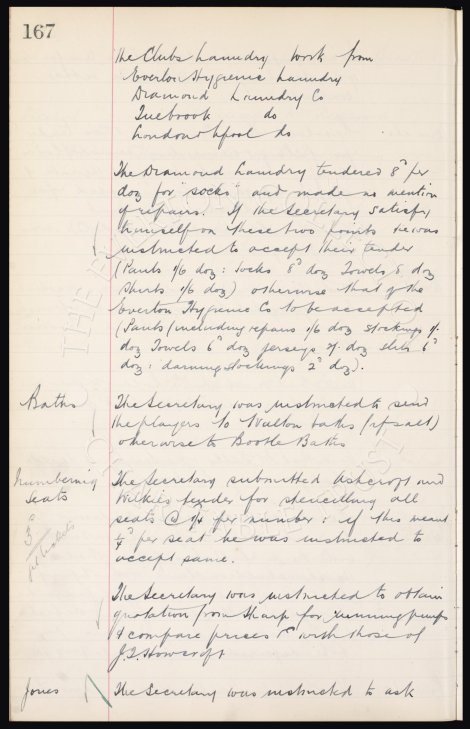 167
The Clubs Laundry work from
Everton Hygienic Laundry
Diamond Laundry Co
Tuebrook do
London & Lpool do
The Diamond Laundry tendered 8d per
doz for "socks" and made no mention
of repairs. If the Secretary satisfy
himself on these two points he was
instructed to accept their tender
(Pants 1/6 doz: Socks 8d doz Towels 8 doz
Shirts 1/6 doz) otherwise that of the
Everton Hygienic Co to be accepted
(Pants (including repairs 1/6 doz stockings 1/-
doz Towels 6d doz jerseys 1/- doz slips 6d
doz: darning stockings 2d doz).
Baths
The Secretary was instructed to send
the players to Walton baths (if salt)
otherwise to Bootle Baths
Numbering
Seats
The Secretary submitted Ashcroft and
Wilkies tender for stencilling all
seats @ per number: if this meant
¼d per seat he was instructed to
accept same.
The Secretary was instructed to obtain
quotation from Sharp for running pumps
& compare prices &c with those of
J.S. Howcroft
Jones
The Secretary was instructed to ask